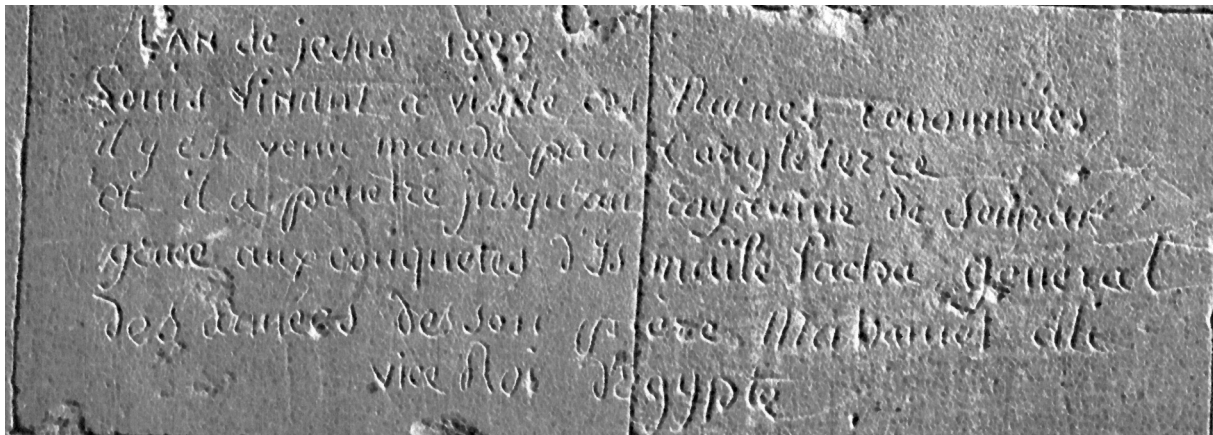 LAN de jesus 1822
Louis Vinant a visité ces Ruines renommées
il y est venu mandé par L'angleterre
et il a pénétré jusqu'au Royaume de Sennar
grace aux conquetes d'Ismaïle Pacha général
des armées de son pere Mahomet Ali
vice Roi d'Egypte